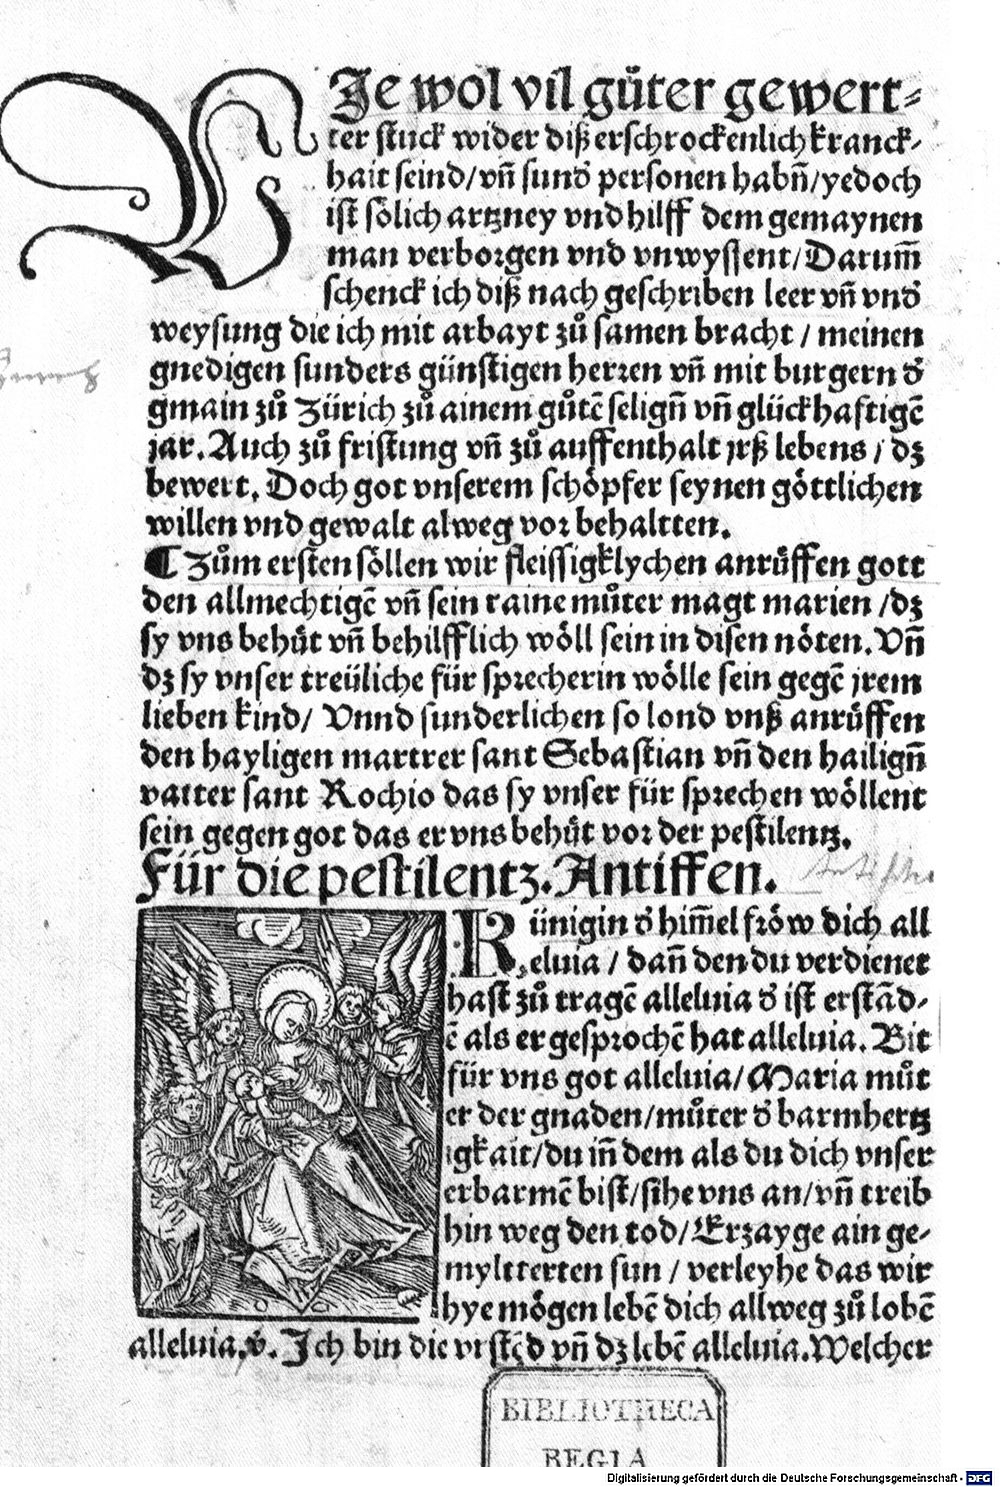 WJe wol vil gůter gewert⸗
ter stuck wider diß erschrockenlich kranck⸗
hait seind/vñ sund᷑ personen habñ/yedoch
ist sölich artzney vnd hilff dem gemaynen
man verborgen vnd vnwyssent/Darum̃
schenck ich diß nach geschriben leer vñ vnd᷑
weysung die ich mit arbayt zů samen bracht / meinen
gnedigen sunders günstigen herren vñ mit burgern d᷑
gmain zů Zürich zů ainem gůtẽ selignñ vñ glückhaftigẽ
jar. Auch zů fristung vñ zů auffenthalt jrß lebens / dz
bewert. Doch got vnserem schöpfer seynen göttlichen
willen vnd gewalt alweg vor behaltten.
¶ Zům ersten söllen wir fleissigklychen anrůffen gott
den allmechtigẽ vñ sein raine můter magt marien /dz
sy vns behůt vñ behilfflich wöll sein in disen nöten. Vñ
dz sy vnser treüliche für sprecherin wölle sein gegẽ jrem
lieben kind/ Vnnd sunderlichen so lond vnß anrůffen
den hayligen martrer sant Sebastian vñ den hailignñ
vatter sant Rochio das sy vnser für sprechen wöllent
sein gegen got das er vns behůt vor der pestilentz.
Für die pestilentz. Antiffen.
Künigin d᷑ him̃el fröw dich all
eluia / dañ den du verdienet
hast zů tragẽ alleluia d᷑ ist erstãd⸗
ẽ als er gesprochẽ hat alleluia. Bit
für vns got alleluia/Maria můt
er der gnaden/můter d᷑ barmhertz
igkait/du iñ dem als du dich vnser
erbarmẽ bist/sihe vns an/vñ treib
hin weg den tod/Erzayge ain ge⸗
myltterten sun / verleyhe das wir
hye mögen lebẽ dich allweg zů lobẽ
alleluia. v. Ich bin die vrstẽd vñ dz lebẽ alleluia. Welcher
BIBLIOTHECA
REGIA
Digitalisierung gefördert durch die Deutsche Forschungsgemeinschaft - DFG